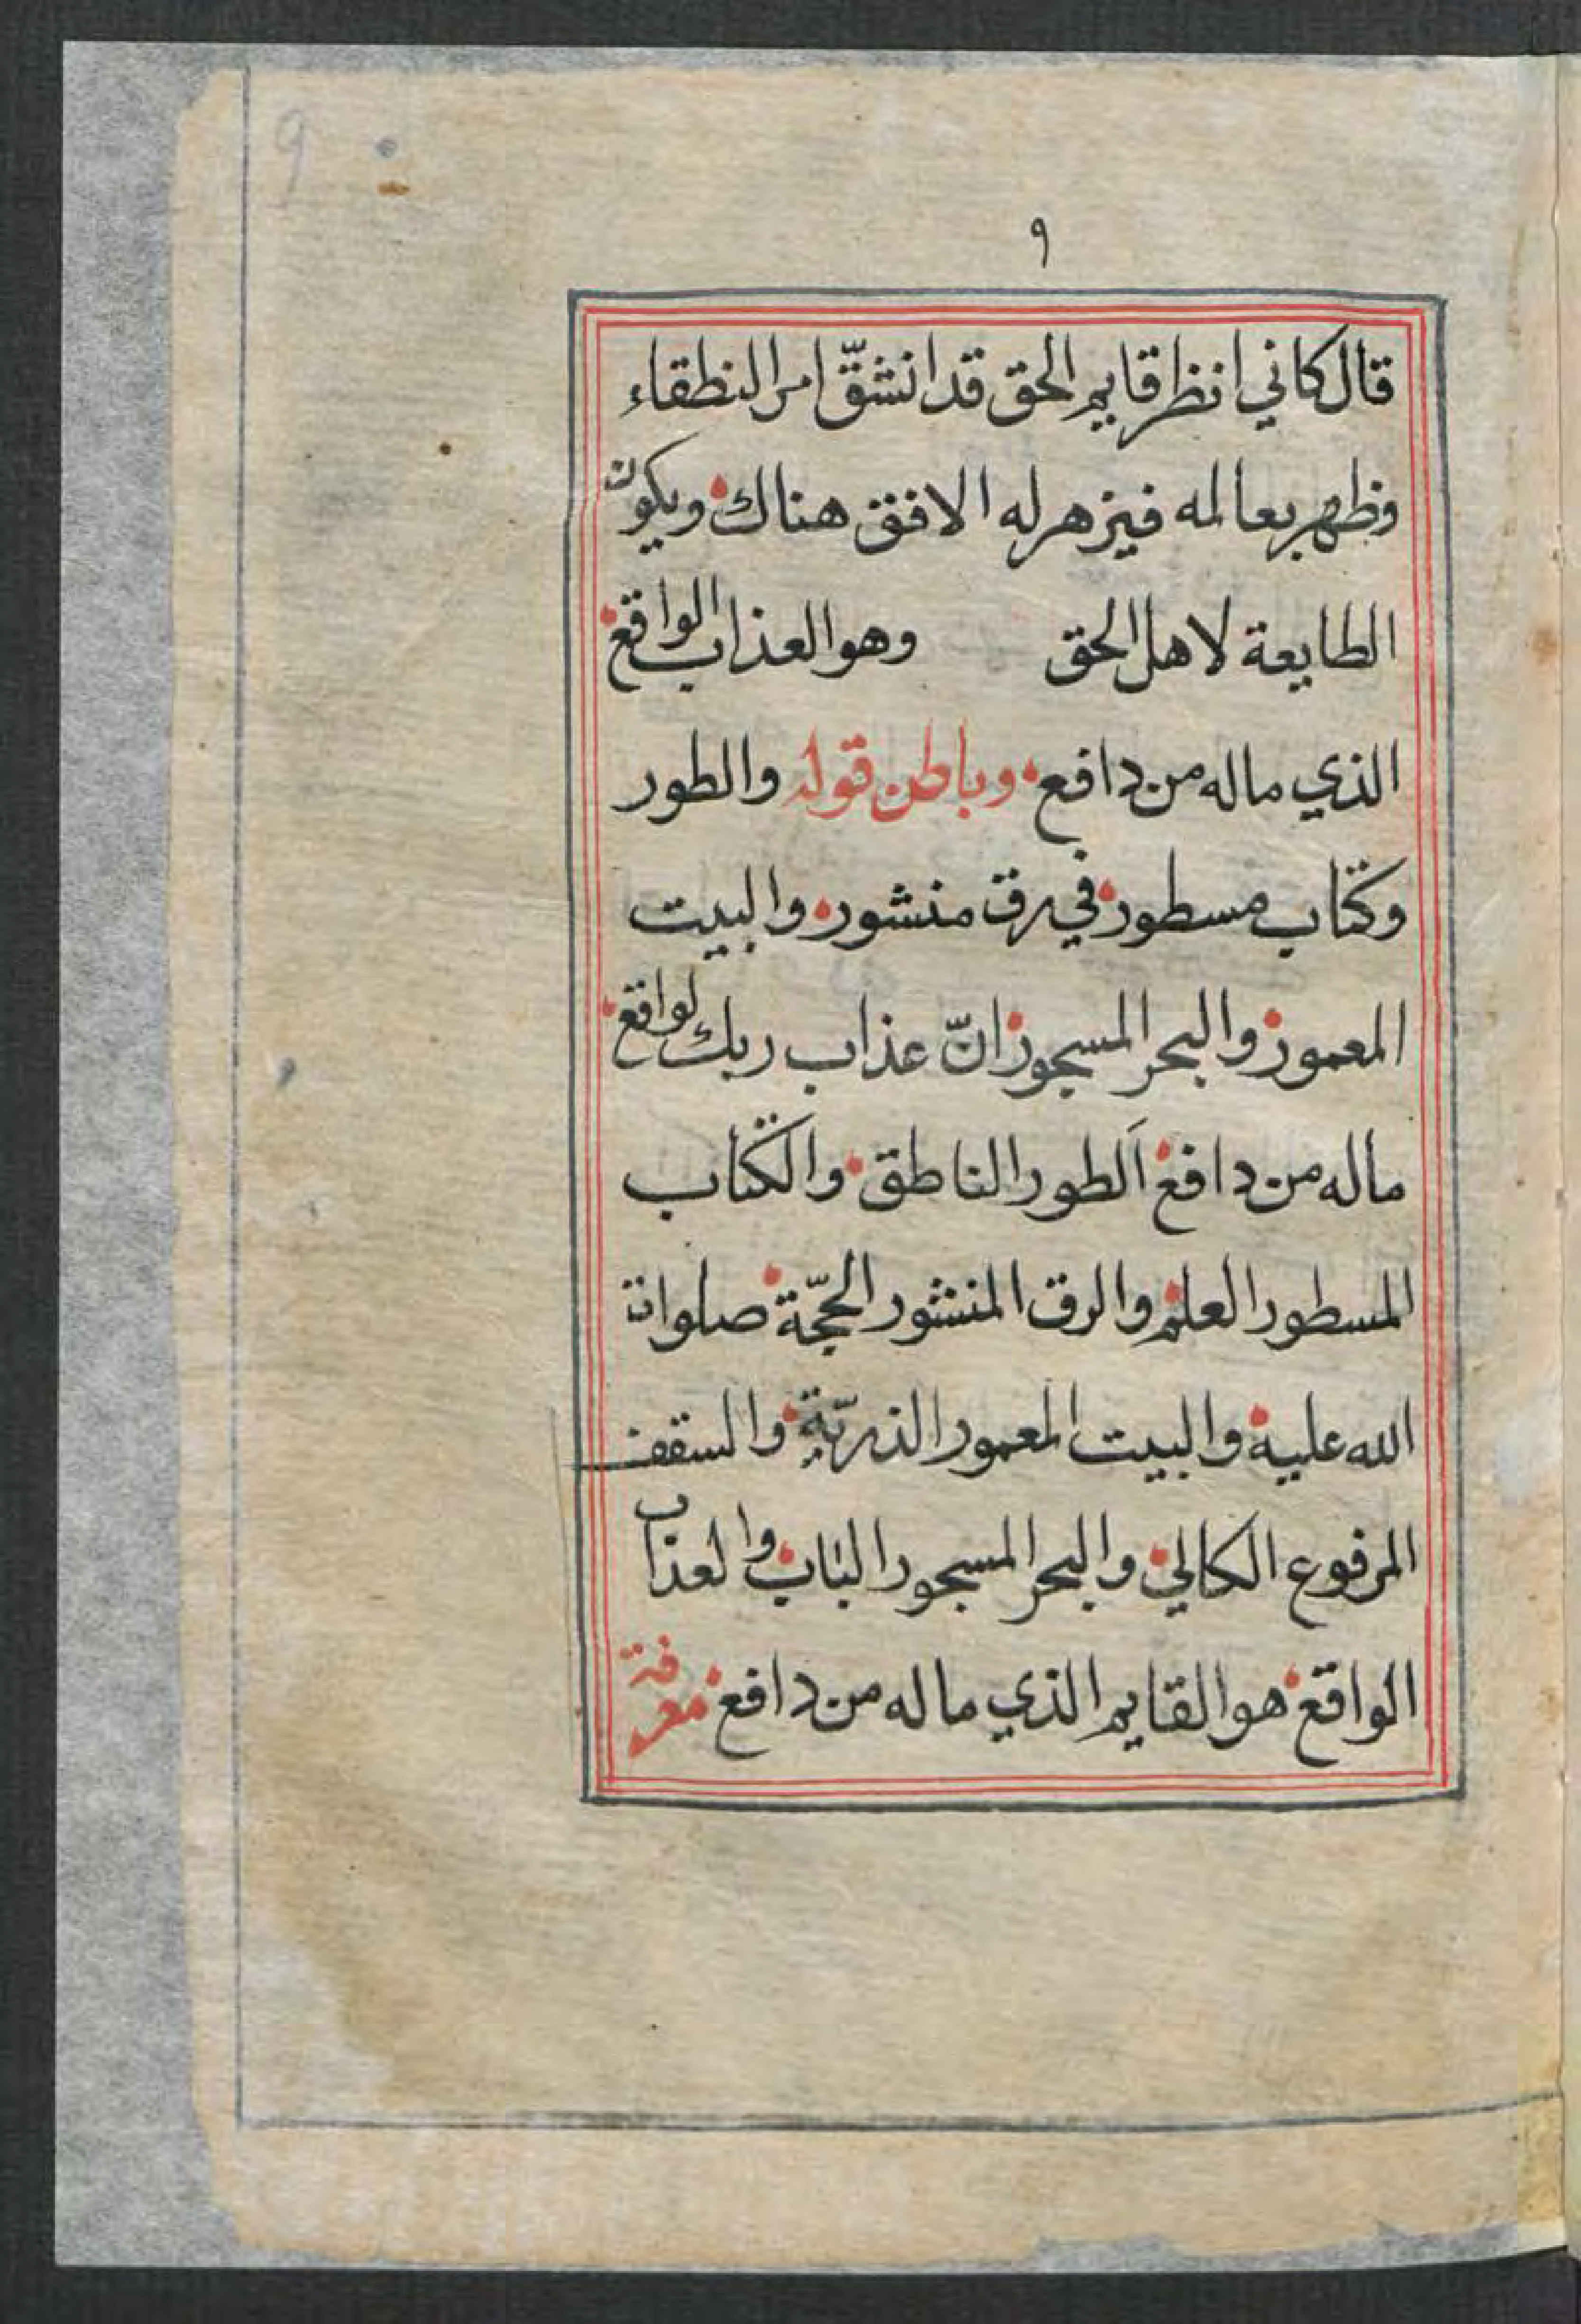 9
٩
قال كاني انظر قايم الحق قد انشقّ امر النطقاء
وظهر بعالمه فيزهر له الافق هناك ويكون
الطايعة لاهل الحق وهو العذاب الواقع
الذي ماله من دافع وباطن قوله والطور
وكتاب مسطور في رق منشور والبيت
المعمور والبحر المسجور انّ عذاب ربك لواقع
ماله من دافع اَلطور الناطق والكتاب
المسطور العلم والرق المنشور الحجّة صلوات
الله عليه والبيت المعمور الذريّة والسقف
المرفوع الكالي والبحر المسجور الباب والعذاب
الواقع هو القايم الذي ماله من دافع معرفة